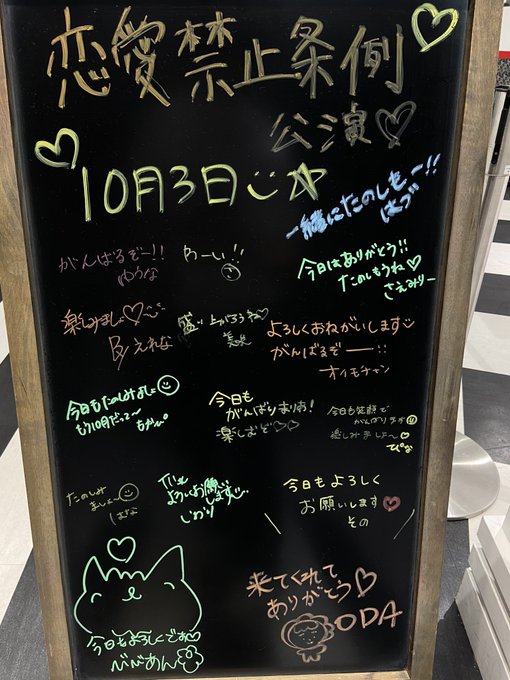 恋愛禁止条例
公演
10月3日
一緒にたのしもー!!
はづ
がんばるぞー!!
ゆうな
わーい!!
今日はありがとう!!
たのしもうね♡
さえみりー
楽しみましょ♡
By えれな
盛り上がろうね♡
美泉
よろしくおねがいします
がんばるぞー!!
オイモチャン
今日もたのしみましょ
もう10月だって〜
ちかぴ
今日も
がんばりまりあ!
楽しむぞ♡♡
今日も笑顔で
がんばります
楽しみましょ〜♡
てぴな
たのしみ
ましょー
はな
よろしくお願い
します
しおり
今日もよろしく
お願いします
その
今日もよろしくです♡
べべあん
来てくれて
ありがとう♡
ODA